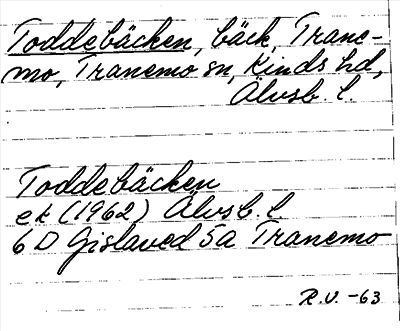 Toddebäcken, bäck, Trane-
mo, Tranemo sn, Kinds hd,
Älvsb. l.
Toddebäcken
ek (1962) Älvsb. l.
6 D Gislaved 5a Tranemo
R.V. -63